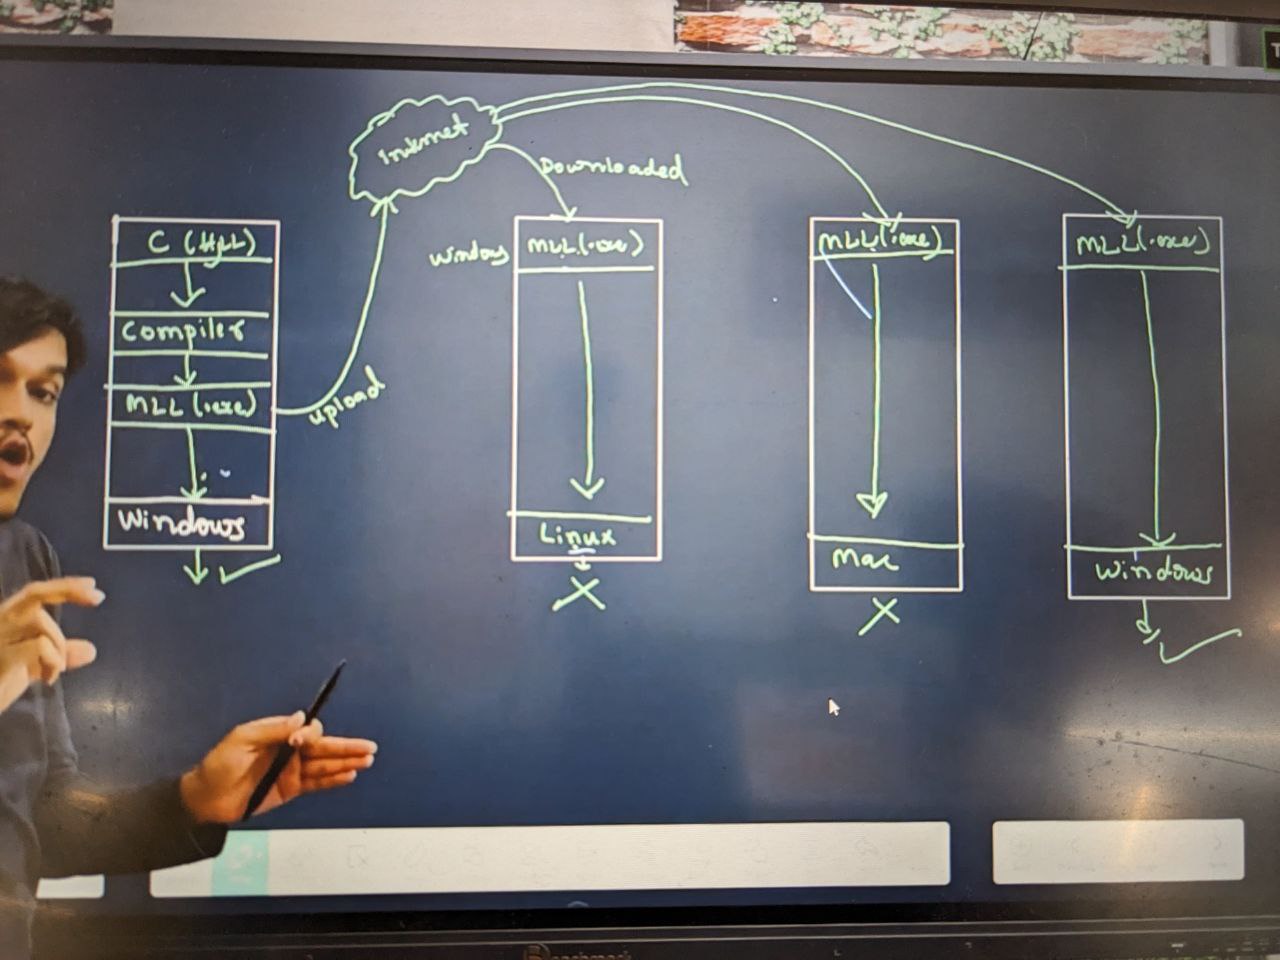 Internet
Downloaded
upload
C (HLL)
Compiler
MLL (.exe)
Windows
Windows
MLL (.exe)
Linux
MLL (.exe)
Mac
MLL (.exe)
Windows